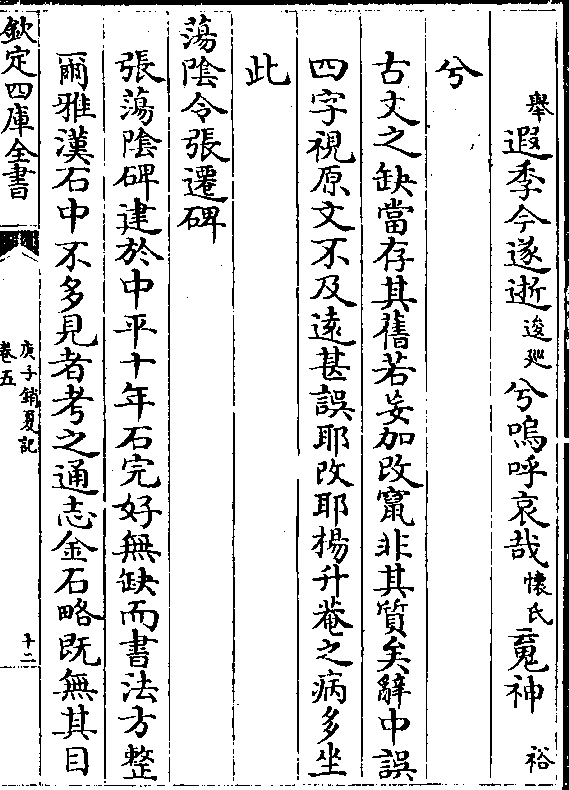 舉遐季今遂逝逡𨒪兮嗚呼哀哉懷氏䰟神裕
兮
古文之缺當存其舊若妄加改竄非其質矣辭中誤
四字視原文不及遠甚誤耶改耶楊升菴之病多坐
此
蕩陰令張遷碑
張蕩陰碑建於中平十年石完好無缺而書法方整
爾雅漢石中不多見者考之通志金石略既無其目
欽定四庫全書
庚子銷夏記
卷五
十二